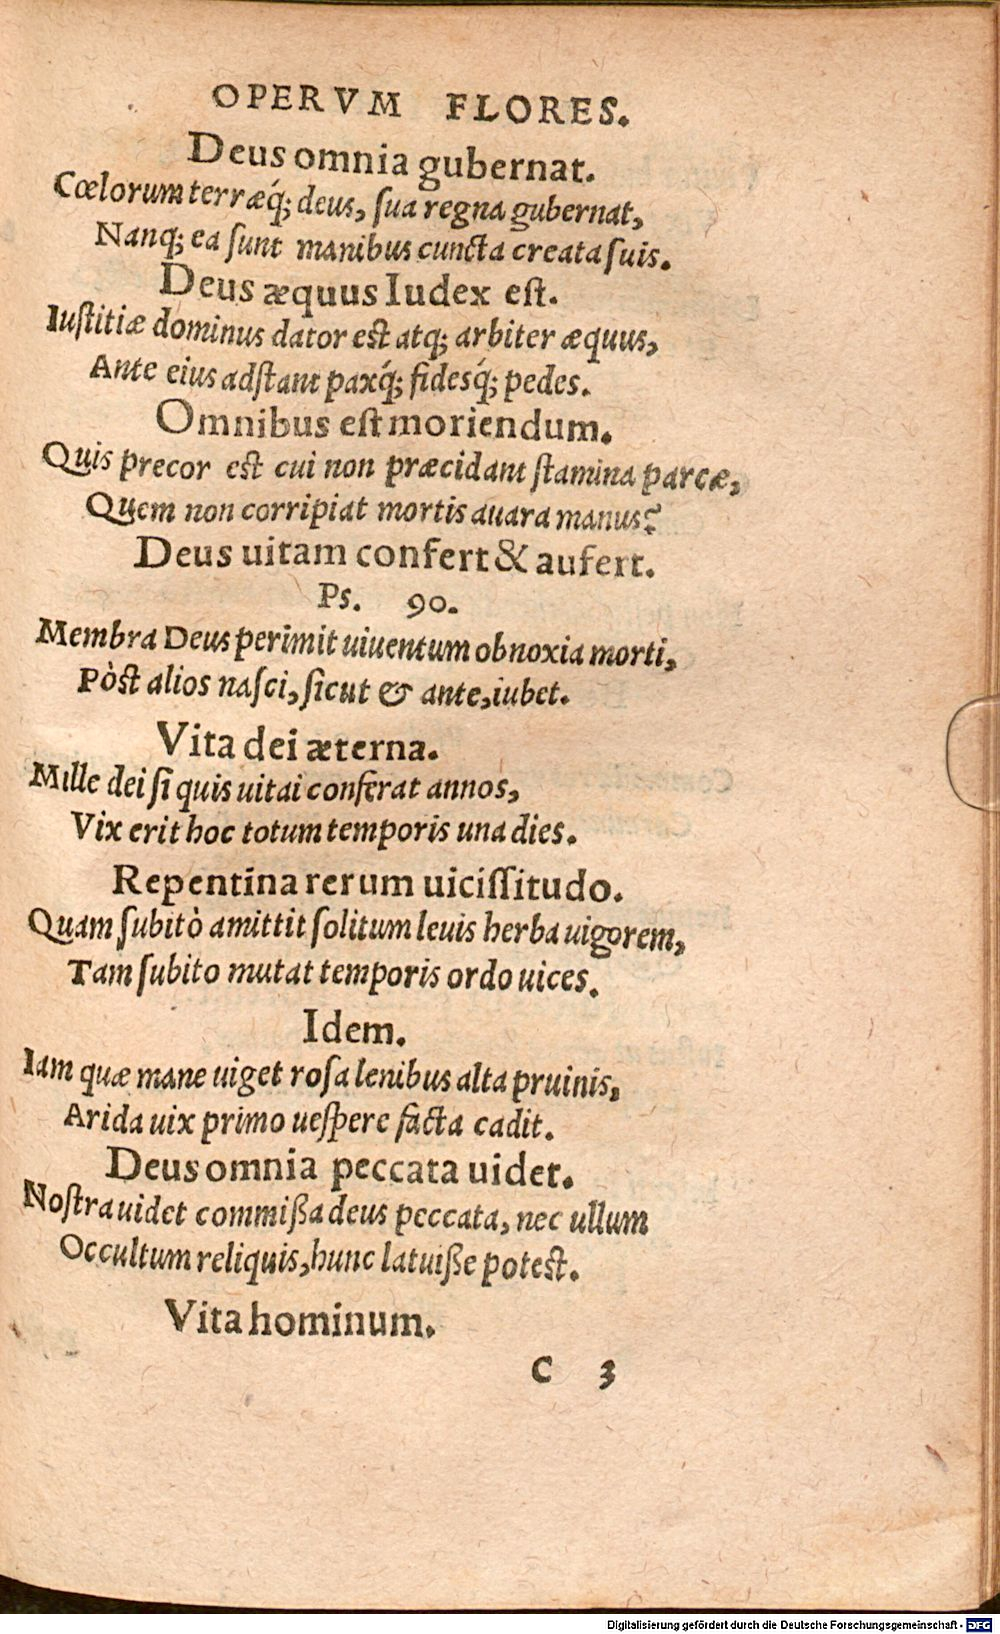 OPERVM FLORES.
Deus omnia gubernat.
Cœlorum terræq́; deus, sua regna gubernat,
Nanq; ea sunt manibus cuncta creata suis.
Deus æquus Iudex est.
Iustitiæ dominus dator est atq; arbiter æquus,
Ante eius adstant paxq́; fidesq́; pedes.
Omnibus est moriendum.
Quis precor est cui non præcidant stamina parcæ,
Quem non corripiat mortis auara manus?
Deus uitam confert & aufert.
Ps. 90.
Membra Deus perimit uiuentum obnoxia morti,
Pòst alios nasci, sicut & ante, iubet.
Vita dei æterna.
Mille dei si quis uitai conferat annos,
Vix erit hoc totum temporis una dies.
Repentina rerum uicissitudo.
Quam subitò amittit solitum leuis herba uigorem,
Tam subito mutat temporis ordo uices.
Idem.
Iam quæ mane uiget rosa lenibus alta pruinis,
Arida uix primo uespere facta cadit.
Deus omnia peccata uidet.
Nostra uidet commißa deus peccata, nec ullum
Occultum reliquis, hunc latuiße potest.
Vita hominum.
C 3
Digitalisierung gefördert durch die Deutsche Forschungsgemeinschaft - DFG